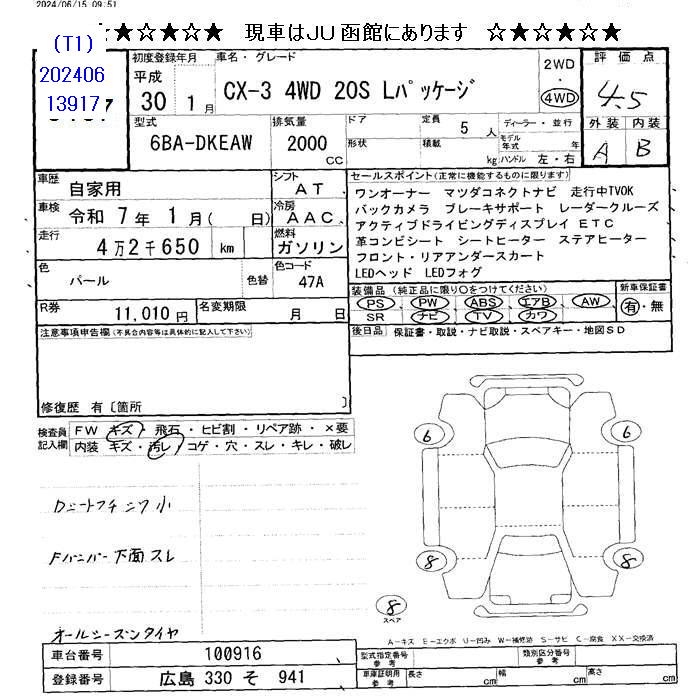 2024/06/15 09:51
★☆★☆★ 現車はJU函館にあります ☆★☆★☆★
(T1)
202406
13917
初度登録年月
平成
30 1月
車名・グレード
CX-3 4WD 20S Lパッケージ
2WD
・
4WD
評価点
4.5
外装 内装
A B
型式
6BA-DKEAW
排気量
2000
CC
ドア
形状
定員 5 人
積載 kg
ディーラー・並行
モデル年式 年
ハンドル 左・右
車歴
自家用
シフト
AT
車検
令和 7年 1月( 日)
冷房
AAC
走行
4万2千650 km
燃料
ガソリン
色
パール
色替
色コード
47A
R券
11,010 円
名変期限
月 日
セールスポイント(正常に機能するものに限ります)
ワンオーナー マツダコネクトナビ 走行中TVOK
バックカメラ ブレーキサポート レーダークルーズ
アクティブドライビングディスプレイ ETC
革コンビシート シートヒーター ステアヒーター
フロント・リアアンダースカート
LEDヘッド LEDフォグ
装備品(純正品に限り○をつけてください)
PS PW ABS エアB AW
SR ナビ TV カワ
新車保証書
有・無
後日品 保証書・取説・ナビ取説・スペアキー・地図SD
注意事項申告欄(不具合内容等は具体的に記入して下さい)
修復歴 有〔箇所 〕
検査員
記入欄
FW キズ・飛石・ヒビ割・リペア跡・×要
内装 キズ・汚レ・コゲ・穴・スレ・キレ・破レ
Fバンパー下面スレ
オールシーズンタイヤ
6 6
8 8
8
スペア
A-キズ E-エクボ U-凹み W-補修跡 S-サビ C-腐食 XX-交換済
車台番号 100916
登録番号 広島 330 そ 941
型式指定番号
参考
類別区分番号
参考
車庫証明用
参考
長さ cm
幅 cm
高さ cm